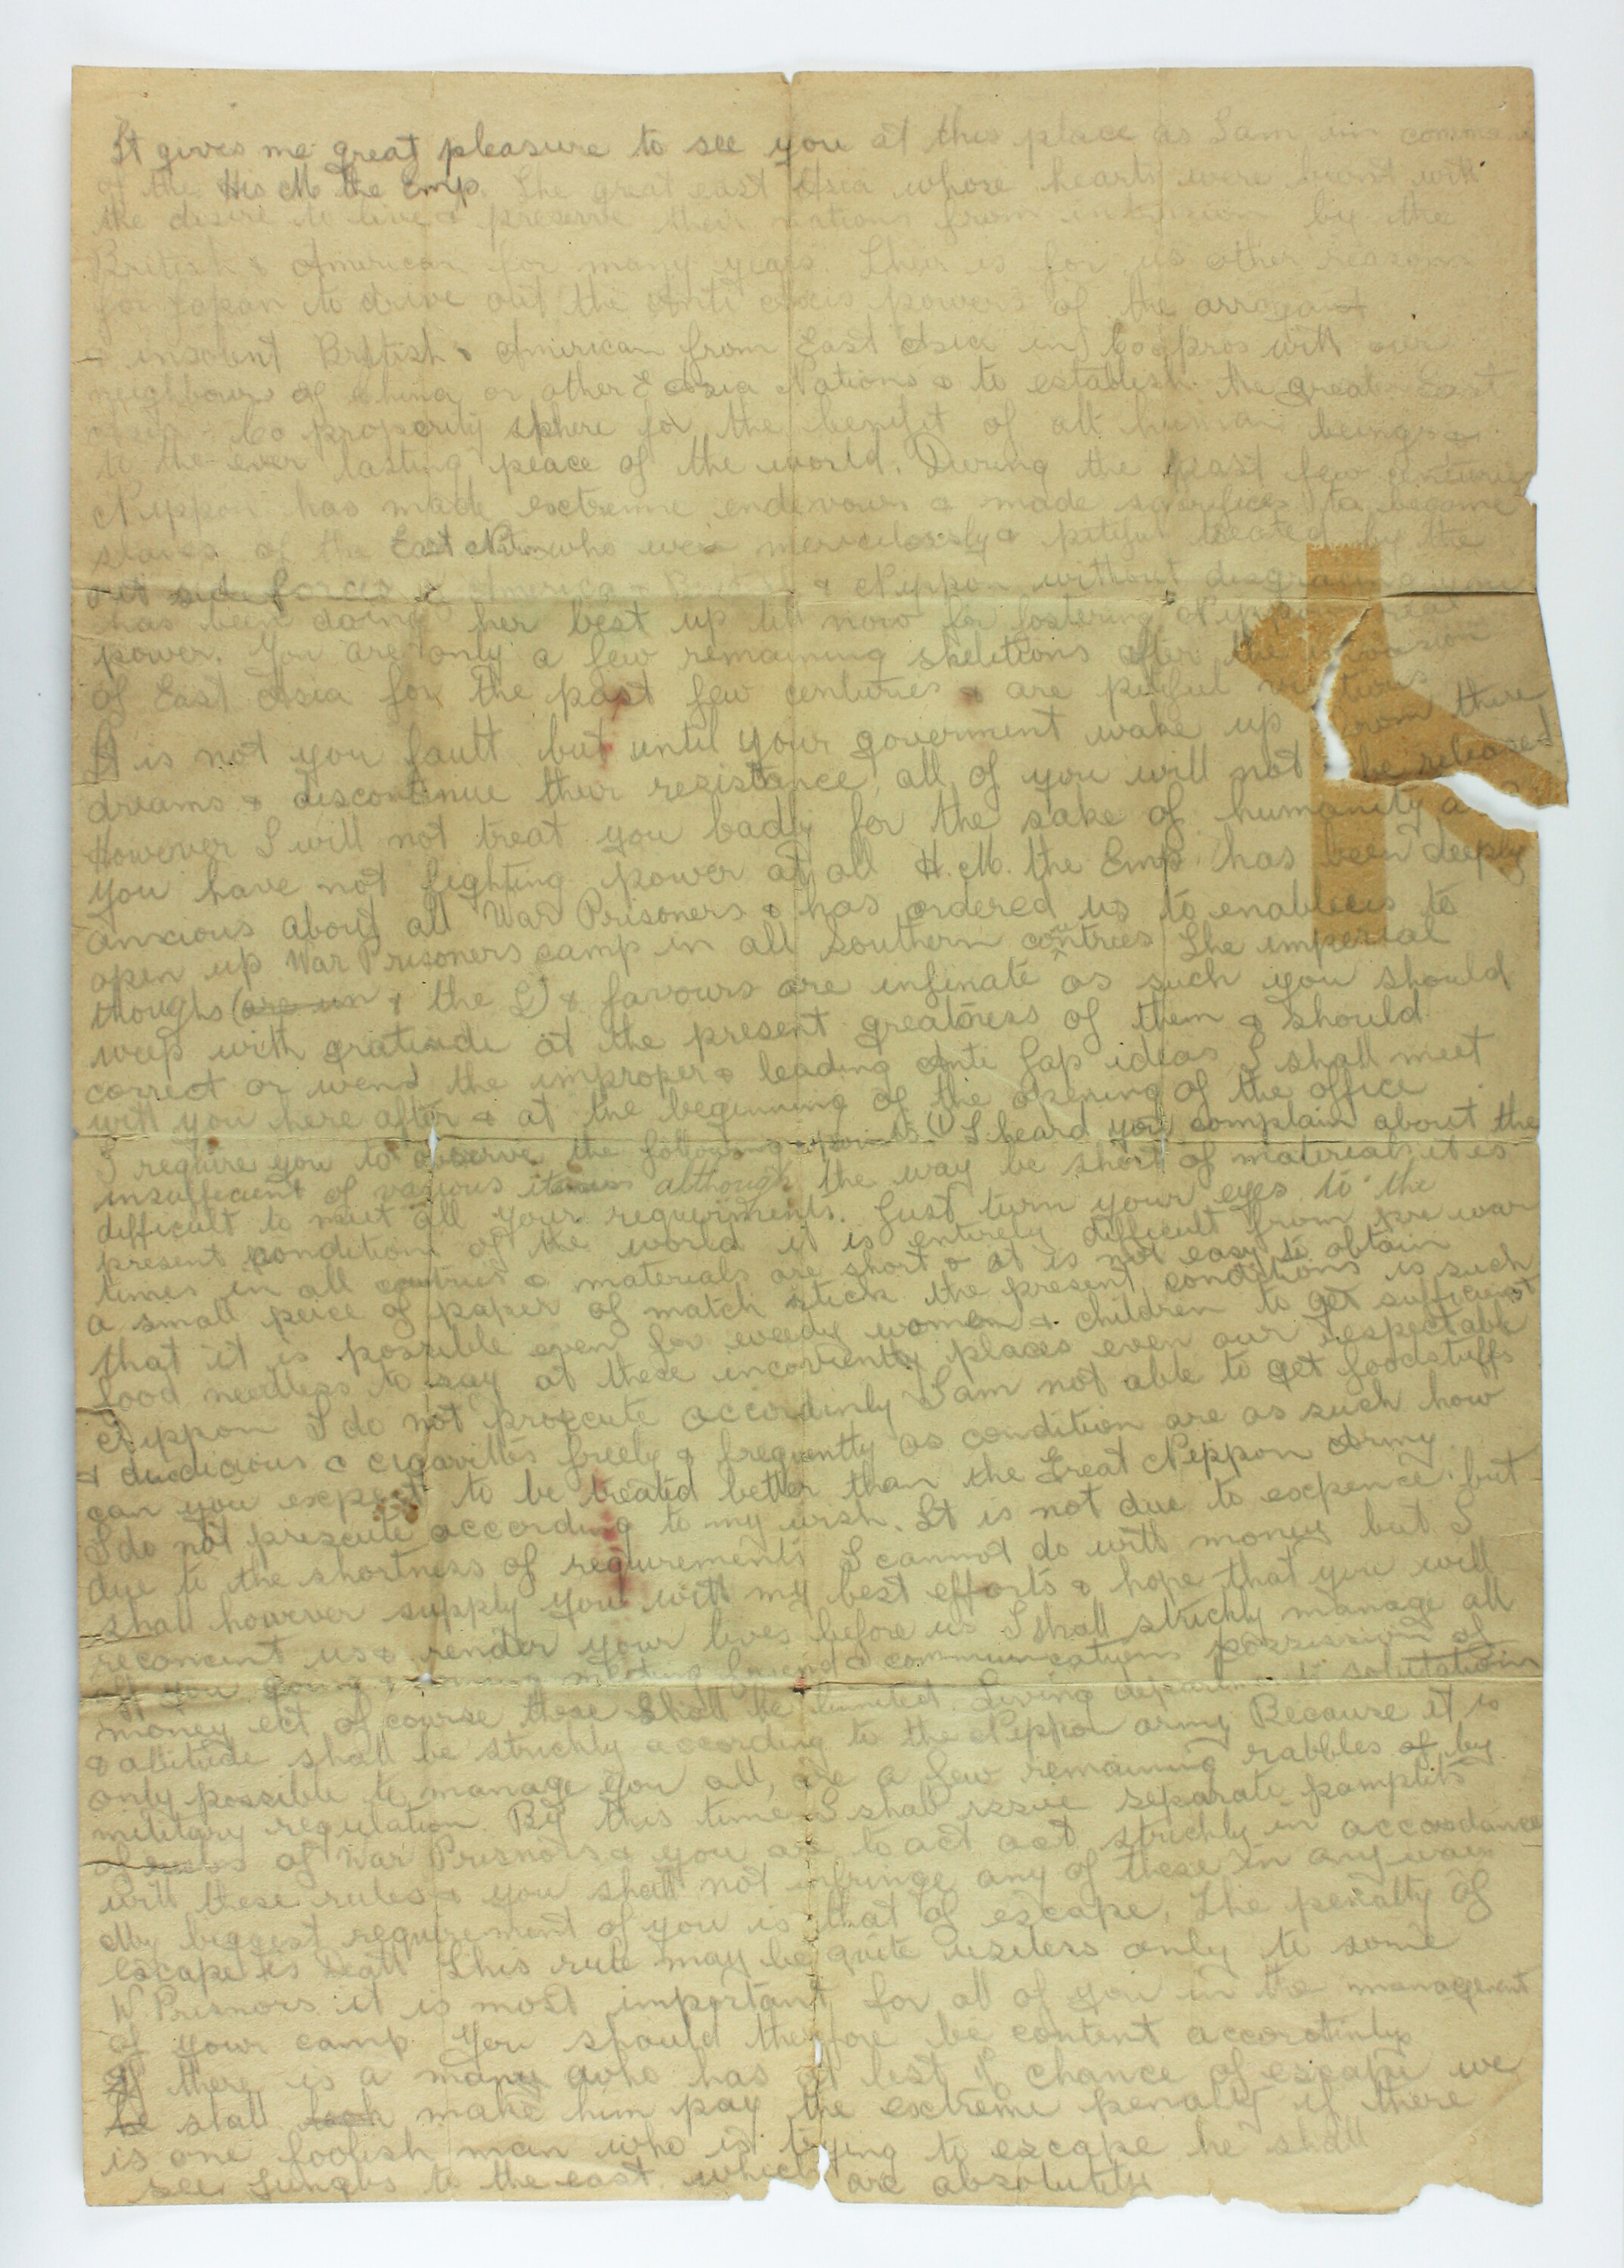 It gives me great pleasure to see you at this place as I am in comma
of the His M the Emp. The great east Asia whose hearts were burnt with
the desire to live & preserve their nations from intrusion by the
British & American for many years. Their is for us other reasons
for Japan to drive out the Anti Axis powers of the arrogant
& insolent British & American from East Asia in with our
neighbours of China or other E Asia Nations & to establish the great East
Asia Co properity sphere for the benefit of all human beings &
to the ever lasting peace of the world. During the past few centuries
Nippon has made extreme endevours & made sacrifices to become
slaves of the East who were mercilessly & pitiful treated by the
out side forces America British & Nippon without disgracing
has been doing her best up till now for fostering Nippon real
power. You are only a few remaining skelitions after the invasion
of East Asia for the past few centuries & are pitiful victims
It is not you fault but until your goverment wake up from there
dreams & discontinue their resistance, all of you will not be released
However I will not treat you badly for the sake of humanity a
you have not fighting power at all H.M. the Emp has been deeply
anxious about all War Prisoners & has ordered us to enable us to
open up War Prisoners camp in all Southern countrees The imperial
thoughs (are un & the L) & favours are infinate as such you should
weep with gratitude at the present greatness of them & should
correct or wend the improper & leading Anti Jap ideas I shall meet
with you here after & at the beginning of the opening of the office
I require you to observe the following points (1) I heard you complain about the
insufficient of various items although the way be short of materials it is
difficult to meet all your requirments. Just turn your eyes to the
present condition of the world it is entirely difficult from pre war
times in all countries & materials are short & at is not easy to obtain
a small peice of paper of match stick the present conditions is such
that it is possible even for weedy women & children to get sufficient
food needless to say at these places even our respectable
Nippon I do not prosecute accordinly I am not able to get foodstuffs
& & cigarittes freely & frequently as condition are as such how
can you expect to be treated better than the Great Nippon Army
I do not prosecute according to my wish. It is not due to expence but
due to the shortness of requirements I cannot do with money but I
shall however supply you with my best efforts & hope that you will
us & render your lives before us I shall strichly manage all
of you going & coming meeting friend & communications possession of
money ect of course these shall be limited. Living salutation
& attitude shall be strichly according to the Nippon army Because it is
only possible to manage you all, are a few remaining rabbles of by
military regulation. By this time I shall issue separate pamplits
of of War Prisnors & you are to act act strichly in accordance
with these rules & you shall not infringe any of these in any way
My biggest requirement of you is that of escape. The penalty of
escape is death This rule may be quite usiters only to some
W Prisnors it is most important for all of you in the management
of your camp. You should therfore be content accordinly
If there is a many who has at lest if chance of escape we
be shall make him pay the extreme penalty if there
is one foolish man who is trying to escape he shall
see jungles to the east which are absolutity